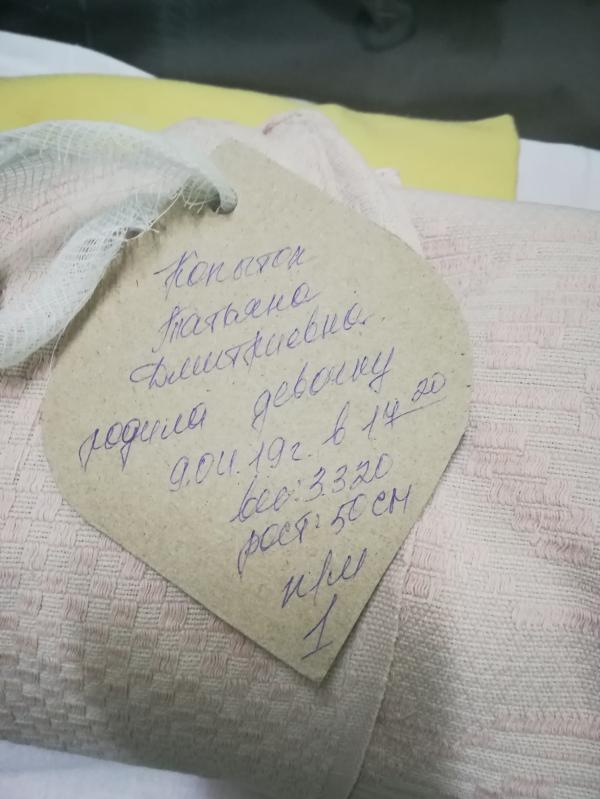 Копыток
Татьяна
Дмитриевна
родила девочку
9.04.19г. в 17 20
вес: 3320
рост: 50 см
н/м
1